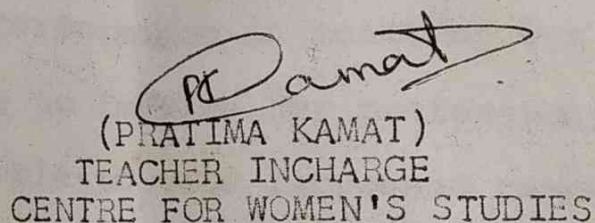 PKamat
(PRATIMA KAMAT)
TEACHER INCHARGE
CENTRE FOR WOMEN'S STUDIES